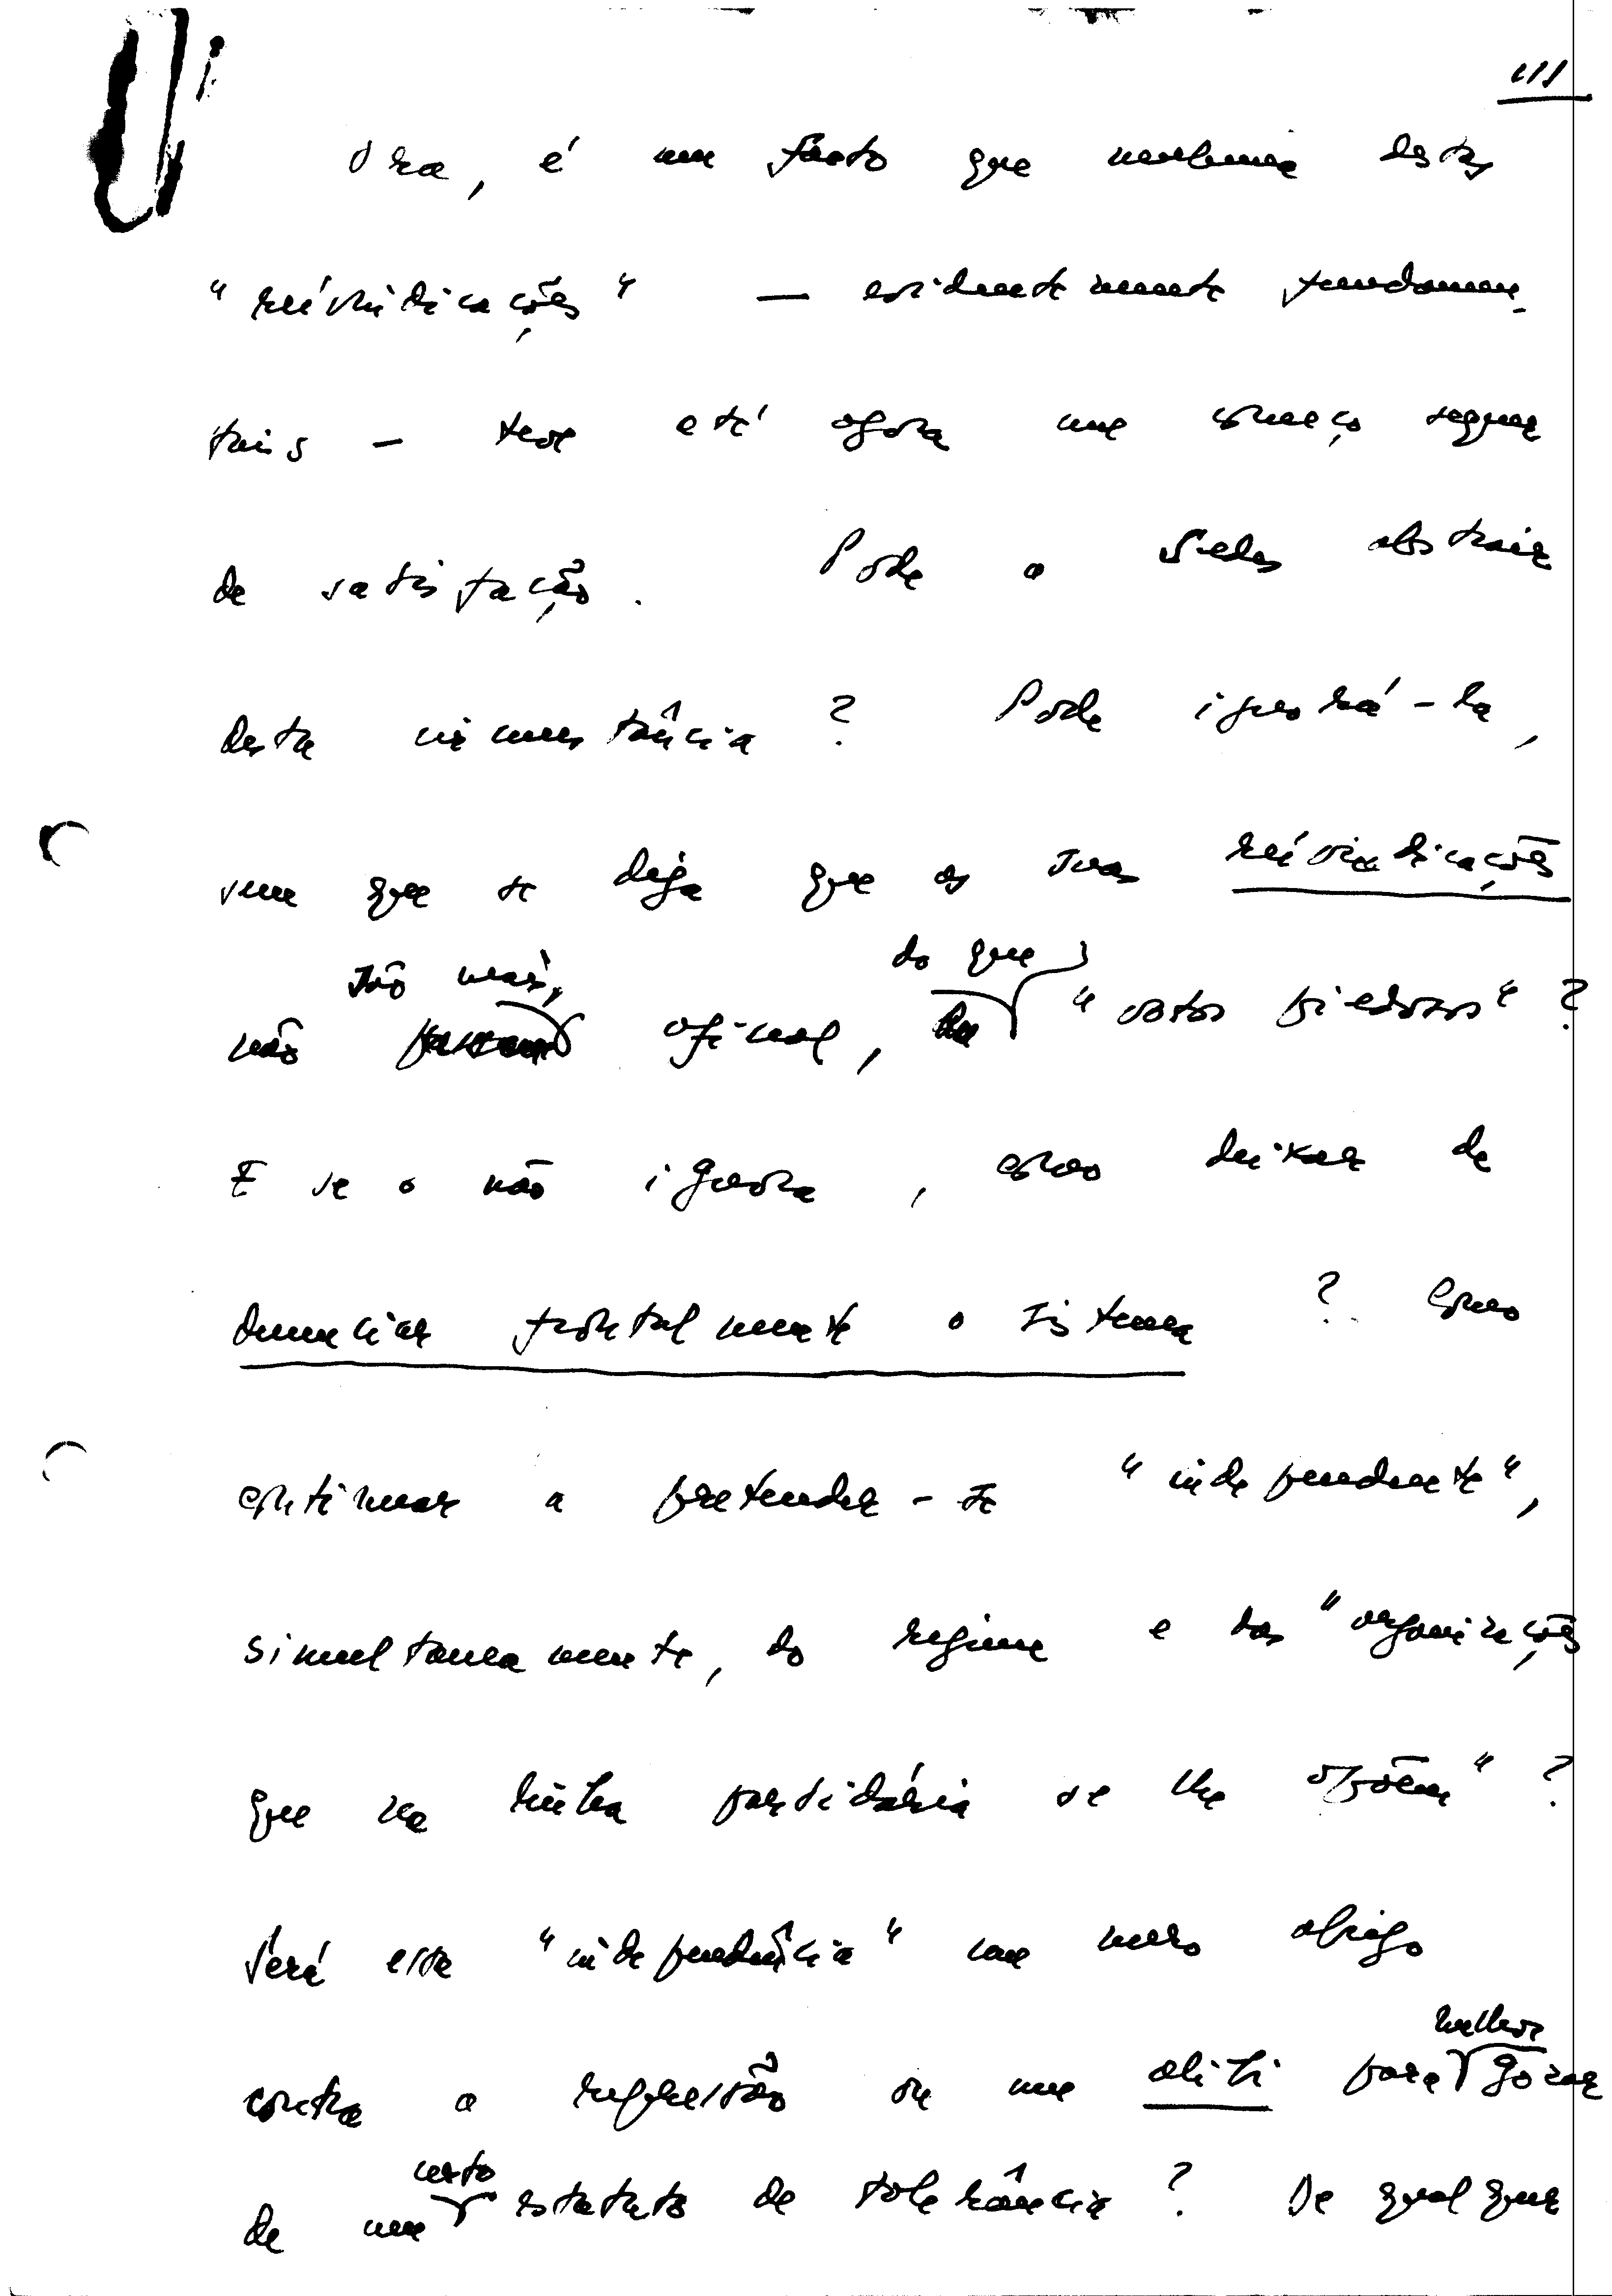 III
Ora, é um facto que nenhuma destas
"reivindicações" — evidentemente fundamen-
tais — teve até agora um começo sequer
de satisfação. Pode o Sedes abstrair
desta circunstância? Pode ignorá-la,
sem que se diga que as suas reivindicações
são mais, do que
não afinal, "votos piedosos"?
E se o não ignora, como deixar de
denunciar frontalmente o sistema? Como
continuar a pretender-se "independente",
simultaneamente, do regime e das "organizações
que na luta partidária se lhe opõem"?
Será essa "independência" um mero abrigo
melhor
contra a repressão ou um alibi para gozar
certo
de um estatuto de tolerância? De qualquer